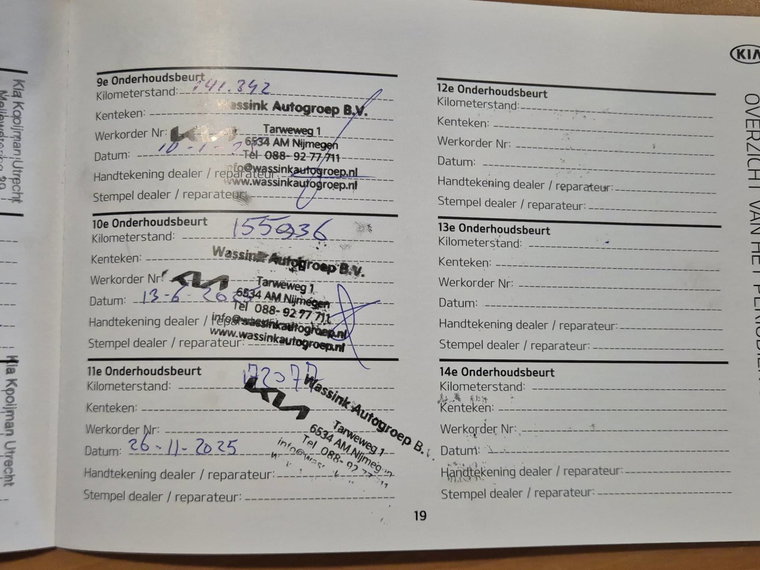 Kia Kooijman Utrecht
Kia Kooijman Utrecht
9e Onderhoudsbeurt
Kilometerstand: 141.342
Kenteken:
Wassink Autogroep B.V.
Werkorder Nr:
KIA
Tarweweg 1
6534 AM Nijmegen
Datum:
Tel 088-92 77 711
Handtekening dealer / reparateur:
info@wassinkautogroep.nl
www.wassinkautogroep.nl
Stempel dealer / reparateur:
10e Onderhoudsbeurt
Kilometerstand: 155936
Kenteken:
Wassink Autogroep B.V.
Werkorder Nr:
KIA
Tarweweg 1
6534 AM Nijmegen
Datum: 13-6-2025
Tel 088-92 77 711
Handtekening dealer / reparateur:
info@wassinkautogroep.nl
www.wassinkautogroep.nl
Stempel dealer / reparateur:
11e Onderhoudsbeurt
Kilometerstand: 172077
Kenteken:
KIA
Wassink Autogroep B.V.
Werkorder Nr:
Tarweweg 1
6534 AM Nijmegen
Datum: 26-11-2025
Tel 088-92 77 711
Handtekening dealer / reparateur:
Stempel dealer / reparateur:
12e Onderhoudsbeurt
Kilometerstand:
Kenteken:
Werkorder Nr:
Datum:
Handtekening dealer / reparateur:
Stempel dealer / reparateur:
13e Onderhoudsbeurt
Kilometerstand:
Kenteken:
Werkorder Nr:
Datum:
Handtekening dealer / reparateur:
Stempel dealer / reparateur:
14e Onderhoudsbeurt
Kilometerstand:
Kenteken:
Werkorder Nr:
Datum:
Handtekening dealer / reparateur:
Stempel dealer / reparateur:
19
KIA
OVERZICHT VAN HET